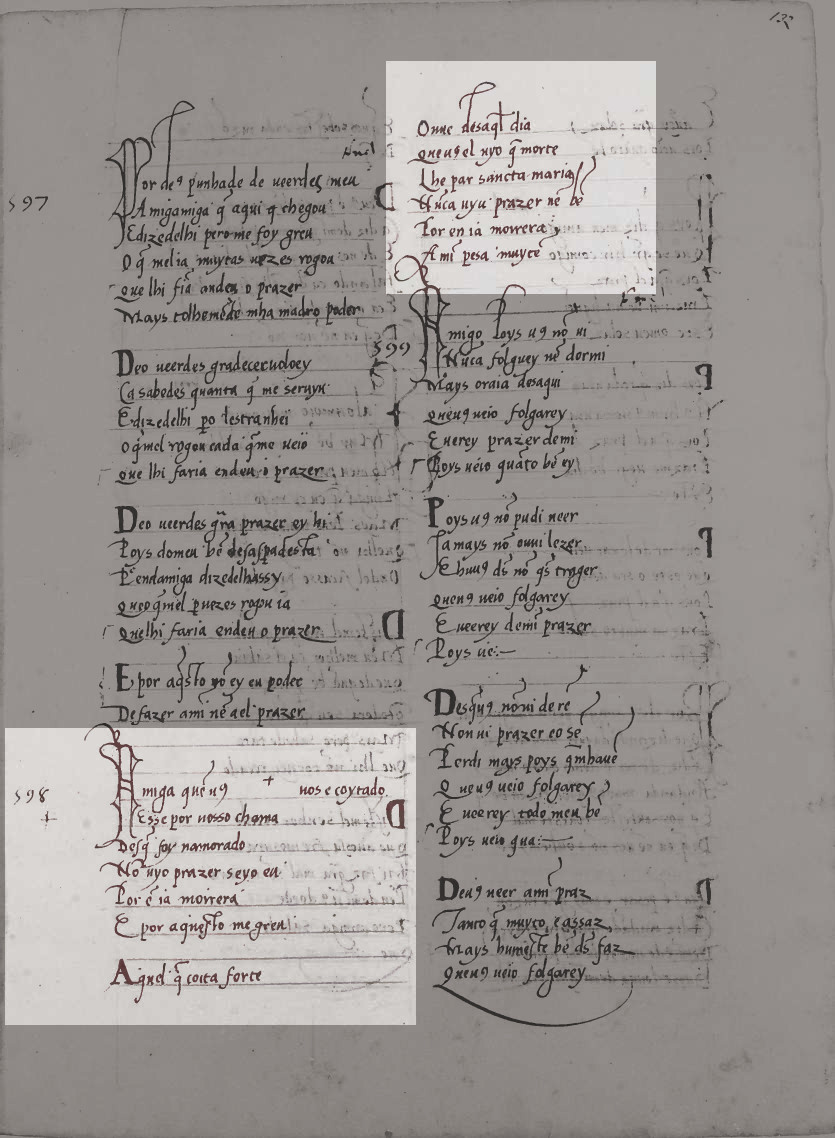 132
597
Por de9 punhade de ueerdes meu
Amigamiga q̃ aqui q chegou
Edizedelhi pero me foy greu
O q̃ mel ia muytas uezes rogou
que lhi fia endeu o prazer
Mays tolhemede mha madro poder
Deo ueerdes gradecervoloey
Ca sabedes quanta q̃ me seruyu
E dizedelhi po lestranhei
o q̃mel rogou cada q̃me ueio
que lhi faria endeu o prazer
Deo ueerdes gr̃a prazer ey hi
Poys domeu bẽ desasp̃adesta
Pendamiga dizedelhassy
que o q̃mel puezes rogou ia
quelhi faria endeu o prazer
E por aq̃sto nõ ey eu poder
De fazer ami nẽ ael prazer
598
Amiga quẽ u9 nos e coytado
Esse por uosso chama
Desq̃ foy namorado
Nõ uyo prazer seyo eu
Por ẽ ia morrera
E por aquesto me greu
Aquel q̃ coita forte
Ouue desaq̃l dia
que u9 el uyo q̃ morte
Lhe par sancta maria
Nũca uyu prazer nẽ bẽ
Por en ia morrera
A mi pesa muyte
599
Amigo Poys u9 nõ ui
Nũca folguey nẽ dormi
Mays ora ia desaqui
queu9 ueio folgarey
E uerey prazer demi
Poys ueio quãto bẽ ey
Poys u9 nõ pudi ueer
Jamays nõ ouui lezer
E huu9 ds̃ nõ q̃s trager
queu9 ueio folgarey
E ueerey demi prazer
Poys ue:—
Desq̃u9 nõ ui de rẽ
Non ui prazer eo sẽ
Perdi mays poys q̃mhauẽ
Queu9 ueio folgarey
E ueerey todo meu bẽ
Poys ueio qua:—
Deu9 ueer ami praz
Tanto q̃ muyto e assaz
Mays humeste bẽ ds̃ faz
Queu9 ueio folgarey